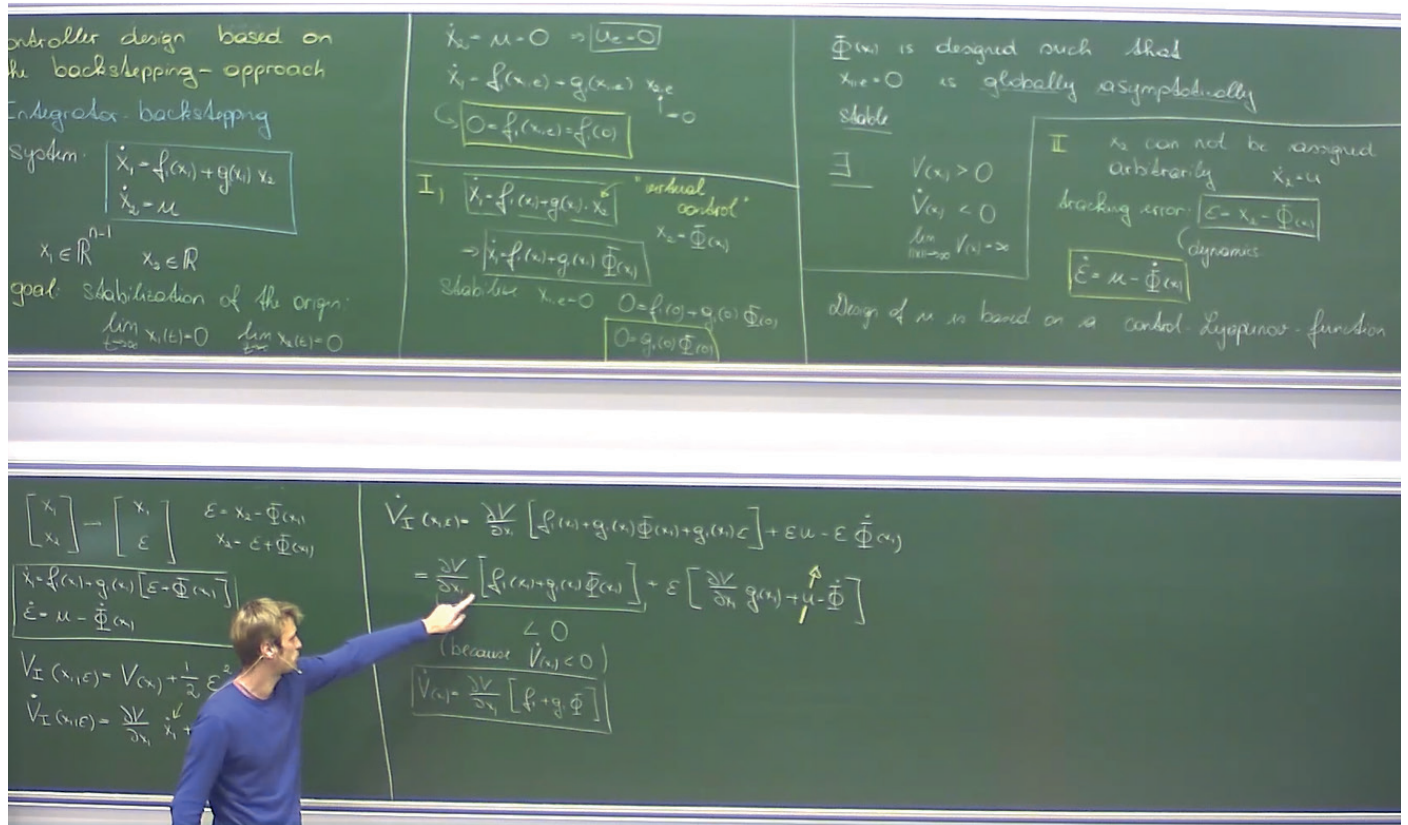 ontroller design based on
he backstepping-approach
Integrator-backstepping
system:
ẋ₁=f₁(x₁)+g(x₁) x₂
ẋ₂=u
x₁∈ℝⁿ⁻¹ x₂∈ℝ
goal: stabilization of the origin:
lim t→∞ x₁(t)=0 lim t→∞ x₂(t)=0
ẋ₂=u=0 ⇒ u_e=0
ẋ₁=f₁(x₁,e)+g₁(x₁,e) x₂,e
=0
0=f₁(x₁,e)=f₁(0)
I)
ẋ₁=f₁(x₁)+g₁(x₁)·x₂
"virtual
control"
x₂=Φ(x₁)
⇒ ẋ₁=f₁(x₁)+g₁(x₁) Φ(x₁)
stabilize x₁,e=0 0=f₁(0)+g₁(0) Φ(0)
0=g₁(0) Φ(0)
Φ(x₁) is designed such that
x₁,e=0 is globally asymptotically
stable
∃ V(x₁)>0
V̇(x₁)<0
lim V(x₁)=∞
II x₂ can not be assigned
arbitrarily ẋ₂=u
tracking error: ε=x₂-Φ(x₁)
dynamics
ε̇=u-Φ̇(x₁)
Design of u is based on a control-Lyapunov-function
[x₁ x₂] → [x₁ ε]
ε=x₂-Φ(x₁)
x₂=ε+Φ(x₁)
ẋ₁=f₁(x₁)+g₁(x₁)[ε+Φ(x₁)]
ε̇=u-Φ̇(x₁)
V_I(x₁,ε)=V(x₁)+1/2 ε²
V̇_I(x₁,ε)=∂V/∂x₁ ẋ₁+
V̇_I(x₁,ε)=∂V/∂x₁ [f₁(x₁)+g₁(x₁)Φ(x₁)+g₁(x₁)ε]+εu-εΦ̇(x₁)
=∂V/∂x₁ [f₁(x₁)+g₁(x₁)Φ(x₁)]+ε[∂V/∂x₁ g₁(x₁)+u-Φ̇]
<0
(because V̇(x₁)<0)
V̇(x₁)=∂V/∂x₁ [f₁+g₁Φ]